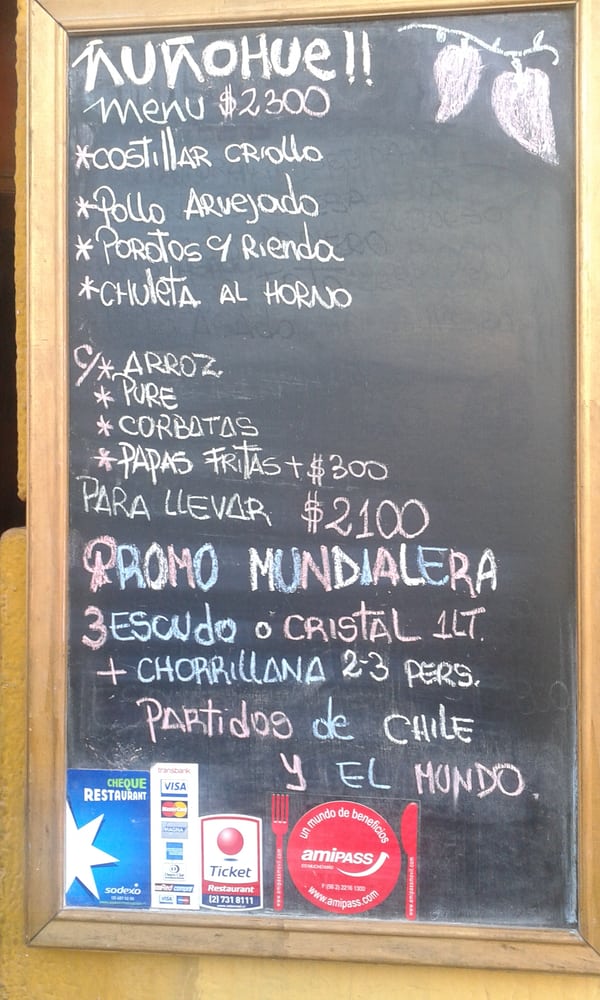 ÑUÑOHUE!!
menu $2300
*COSTILLAR CRIOLLO
*POLLO ARVEJADO
*POROTOS C/ RIENDA
*CHULETA AL HORNO
C/* ARROZ
* PURE
* CORBATAS
* PAPAS FRITAS + $300
PARA LLEVAR $2100
PROMO MUNDIALERA
3 ESCUDO O CRISTAL 1LT.
+ CHORRILLANA 2-3 PERS.
PARTIDOS de CHILE
Y EL MUNDO.
CHEQUE
RESTAURANT
sodexo
transbank
VISA
MasterCard
MAGNA
redcompra
VISA
Ticket
Restaurant
(2) 731 8111
un mundo de beneficios
amiPASS
F (56 2) 2216 1300
www.amipass.com
www.amipassmovil.com
www.amipassmovil.com